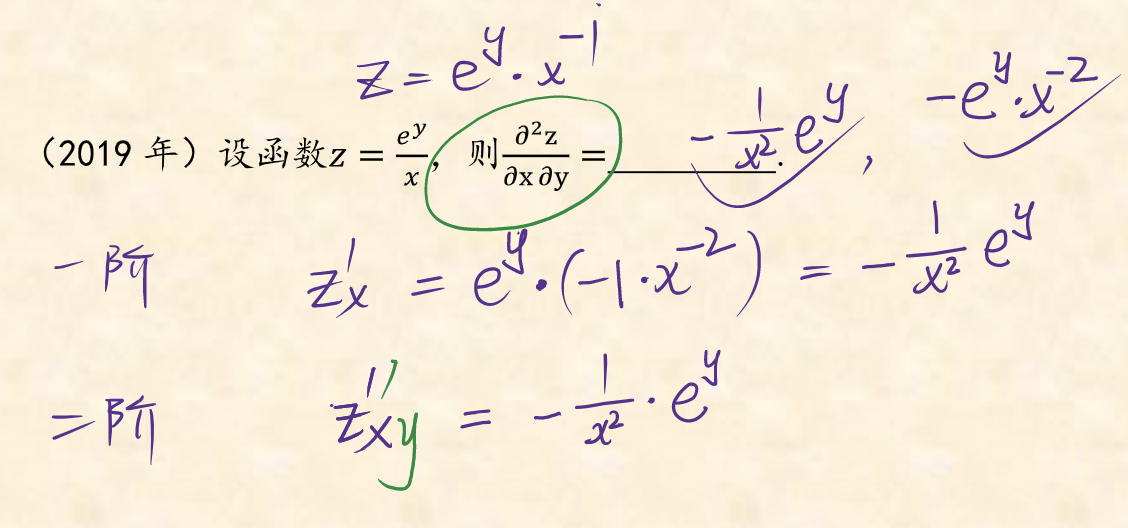 z = e^y · x^{-1}
（2019 年）设函数z = \frac{e^y}{x}，则\frac{∂²z}{∂x ∂y} = ________. -\frac{1}{x²}e^y , -e^y·x^{-2}
一阶 z'_x = e^y·(-1·x^{-2}) = -\frac{1}{x²} e^y
二阶 z''_{xy} = -\frac{1}{x²}·e^y